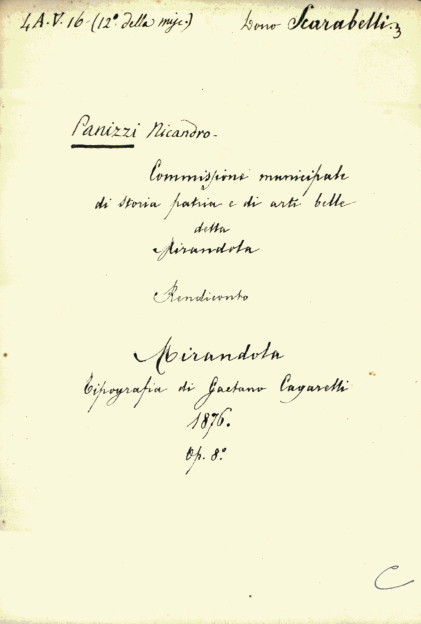 4 A. V. 16 (12º della misc.) Dono Scarabelli
Panizzi Nicandro.
Commissione municipale
di storia patria e di arti belle
della
Mirandola
Rendiconto
Mirandola
Tipografia di Gaetano Cagarelli
1876.
Op. 8º
C